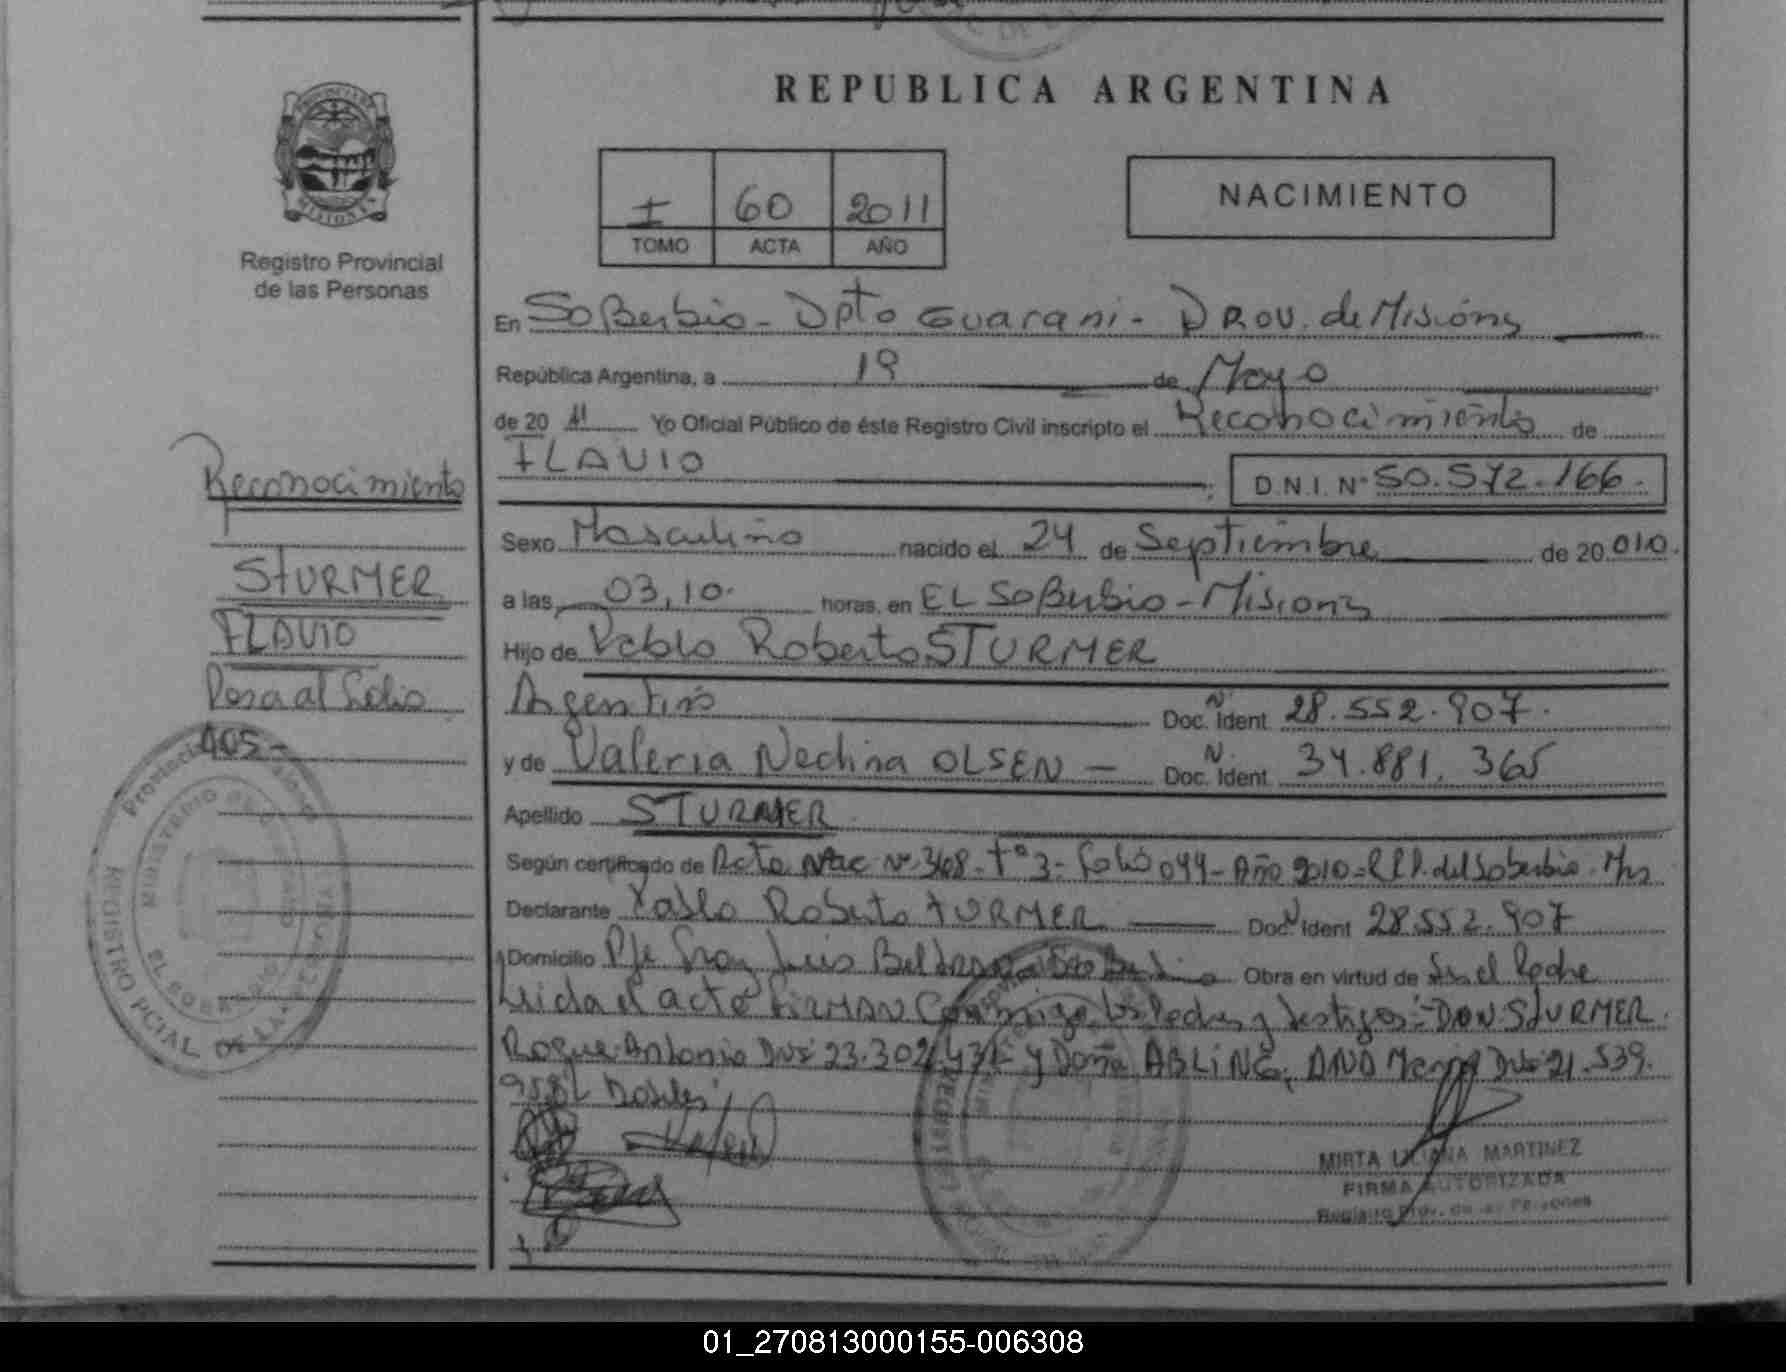 REPUBLICA ARGENTINA
PROVINCIA DE
MISIONES
Registro Provincial
de las Personas
I 60 2011
TOMO ACTA AÑO
NACIMIENTO
En SoBerbio - Dpto Guarani - Prov. de Misiones
República Argentina, a 19 de Mayo
de 20 11 Yo Oficial Público de éste Registro Civil inscripto el Reconocimiento de
FLAVIO D.N.I. Nº 50.572.166.
Sexo Masculino nacido el 24 de Septiembre de 20 010.
a las 03,10. horas, en EL SoBerbio - Misiones
Hijo de Pablo Roberto STURMER
Argentino Doc. Ident. N. 28.552.907.
y de Valeria Nedina OLSEN - Doc. Ident. N. 34.881.365
Apellido STURMER
Según certificado de Acta Nac Nº 368 - Tº 3 - Folio 044 - Año 2010 - R.P.P. del Soberbio - Mns
Declarante Pablo Roberto TURMER Doc. Ident N 28.552.907
Domicilio Pje Fray Luis Beltran Obra en virtud de Ser el Padre
Leida el acta FIRMAN Conmigo los Padres y testigos: DON STURMER
Roque Antonio DNI 23.302. y Doña ABLING, ANA Maria DNI 21.539.
Reconocimiento
STURMER
FLAVIO
Pasa al folio
105-
Provincia
MINISTERIO DE GOBIERNO
EL SOBERBIO
REGISTRO PCIAL DE LAS PERSONAS
MIRTA LILIANA MARTINEZ
FIRMA AUTORIZADA
Registro Prov. de las Personas
01_270813000155-006308